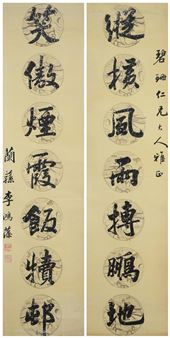 碧珊仁兄大人雅正
縱横風雨搏鵬地
笑傲煙霞飯犢邨
蘭蓀李鴻藻